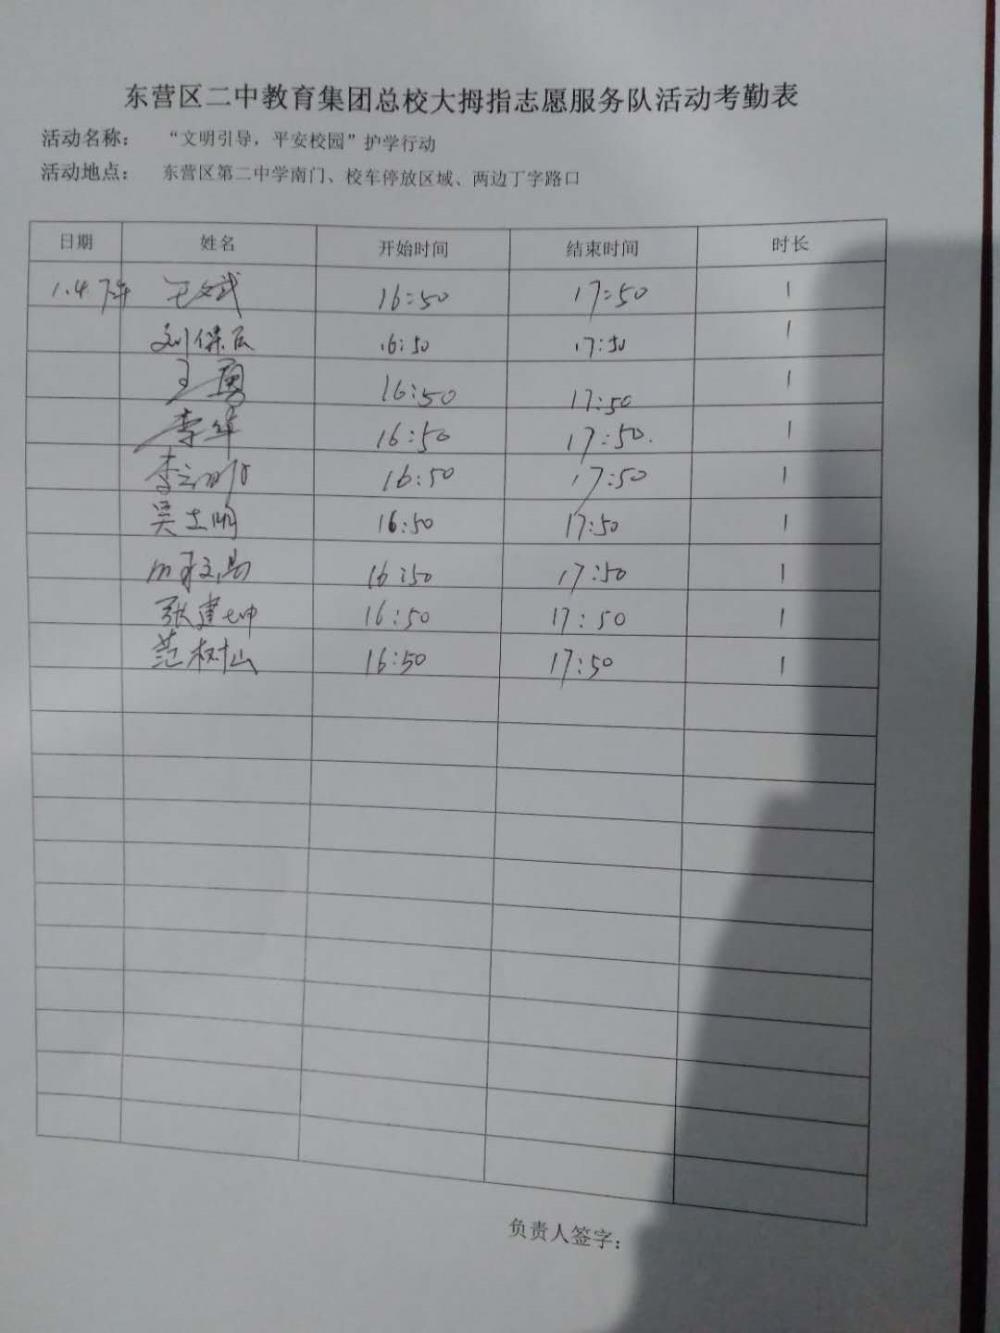 东营区二中教育集团总校大拇指志愿服务队活动考勤表
活动名称： “文明引导，平安校园”护学行动
活动地点： 东营区第二中学南门、校车停放区域、两边丁字路口
日期 姓名 开始时间 结束时间 时长
1.4 下午 王文斌 16:50 17:50 1
刘保民 16:50 17:50 1
王勇 16:50 17:50 1
李华 16:50 17:50. 1
李 16:50 17:50 1
吴士明 16:50 17:50 1
16:50 17:50 1
张建坤 16:50 17:50 1
范树山 16:50 17:50 1
负责人签字：